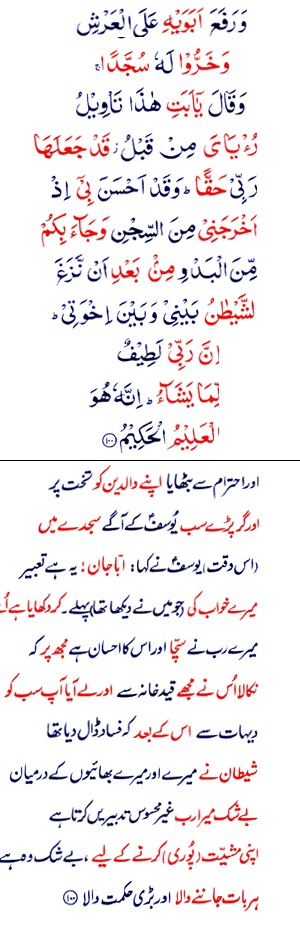 وَرَفَعَ اَبَوَيْهِ عَلَى الْعَرْشِ
وَخَرُّوْا لَهٗ سُجَّدًا ۚ
وَقَالَ يٰۤاَبَتِ هٰذَا تَاْوِيْلُ
رُءْيَايَ مِنْ قَبْلُ ز قَدْ جَعَلَهَا
رَبِّيْ حَقًّا ؕ وَقَدْ اَحْسَنَ بِيْۤ اِذْ
اَخْرَجَنِيْ مِنَ السِّجْنِ وَجَآءَ بِكُمْ
مِّنَ الْبَدْوِ مِنْۢ بَعْدِ اَنْ نَّزَغَ
الشَّيْطٰنُ بَيْنِيْ وَبَيْنَ اِخْوَتِيْ ؕ
اِنَّ رَبِّيْ لَطِيْفٌ
لِّمَا يَشَآءُ ؕ اِنَّهٗ هُوَ
الْعَلِيْمُ الْحَكِيْمُ ﴿۱۰۰﴾
اور احترام سے بٹھایا اپنے والدین کو تخت پر
اور گر پڑے سب یُوسفؑ کے آگے سجدے میں
(اس وقت) یوسفؑ نے کہا: ابّا جان! یہ ہے تعبیر
میرے خواب کی (جو میں نے دیکھا تھا) پہلے۔ کر دکھایا ہے اُسے
میرے رب نے سچّا اور اس کا احسان ہے مجھ پر کہ
نکالا اُس نے مجھے قید خانہ سے اور لے آیا آپ سب کو
دیہات سے اس کے بعد کہ فساد ڈال دیا تھا
شیطان نے میرے اور میرے بھائیوں کے درمیان
بے شک میرا رب غیر محسوس تدبیریں کرتا ہے
اپنی مشیّت (پُوری) کرنے کے لیے، بے شک وہ ہے
ہر بات جاننے والا اور بڑی حکمت والا ﴿۱۰۰﴾